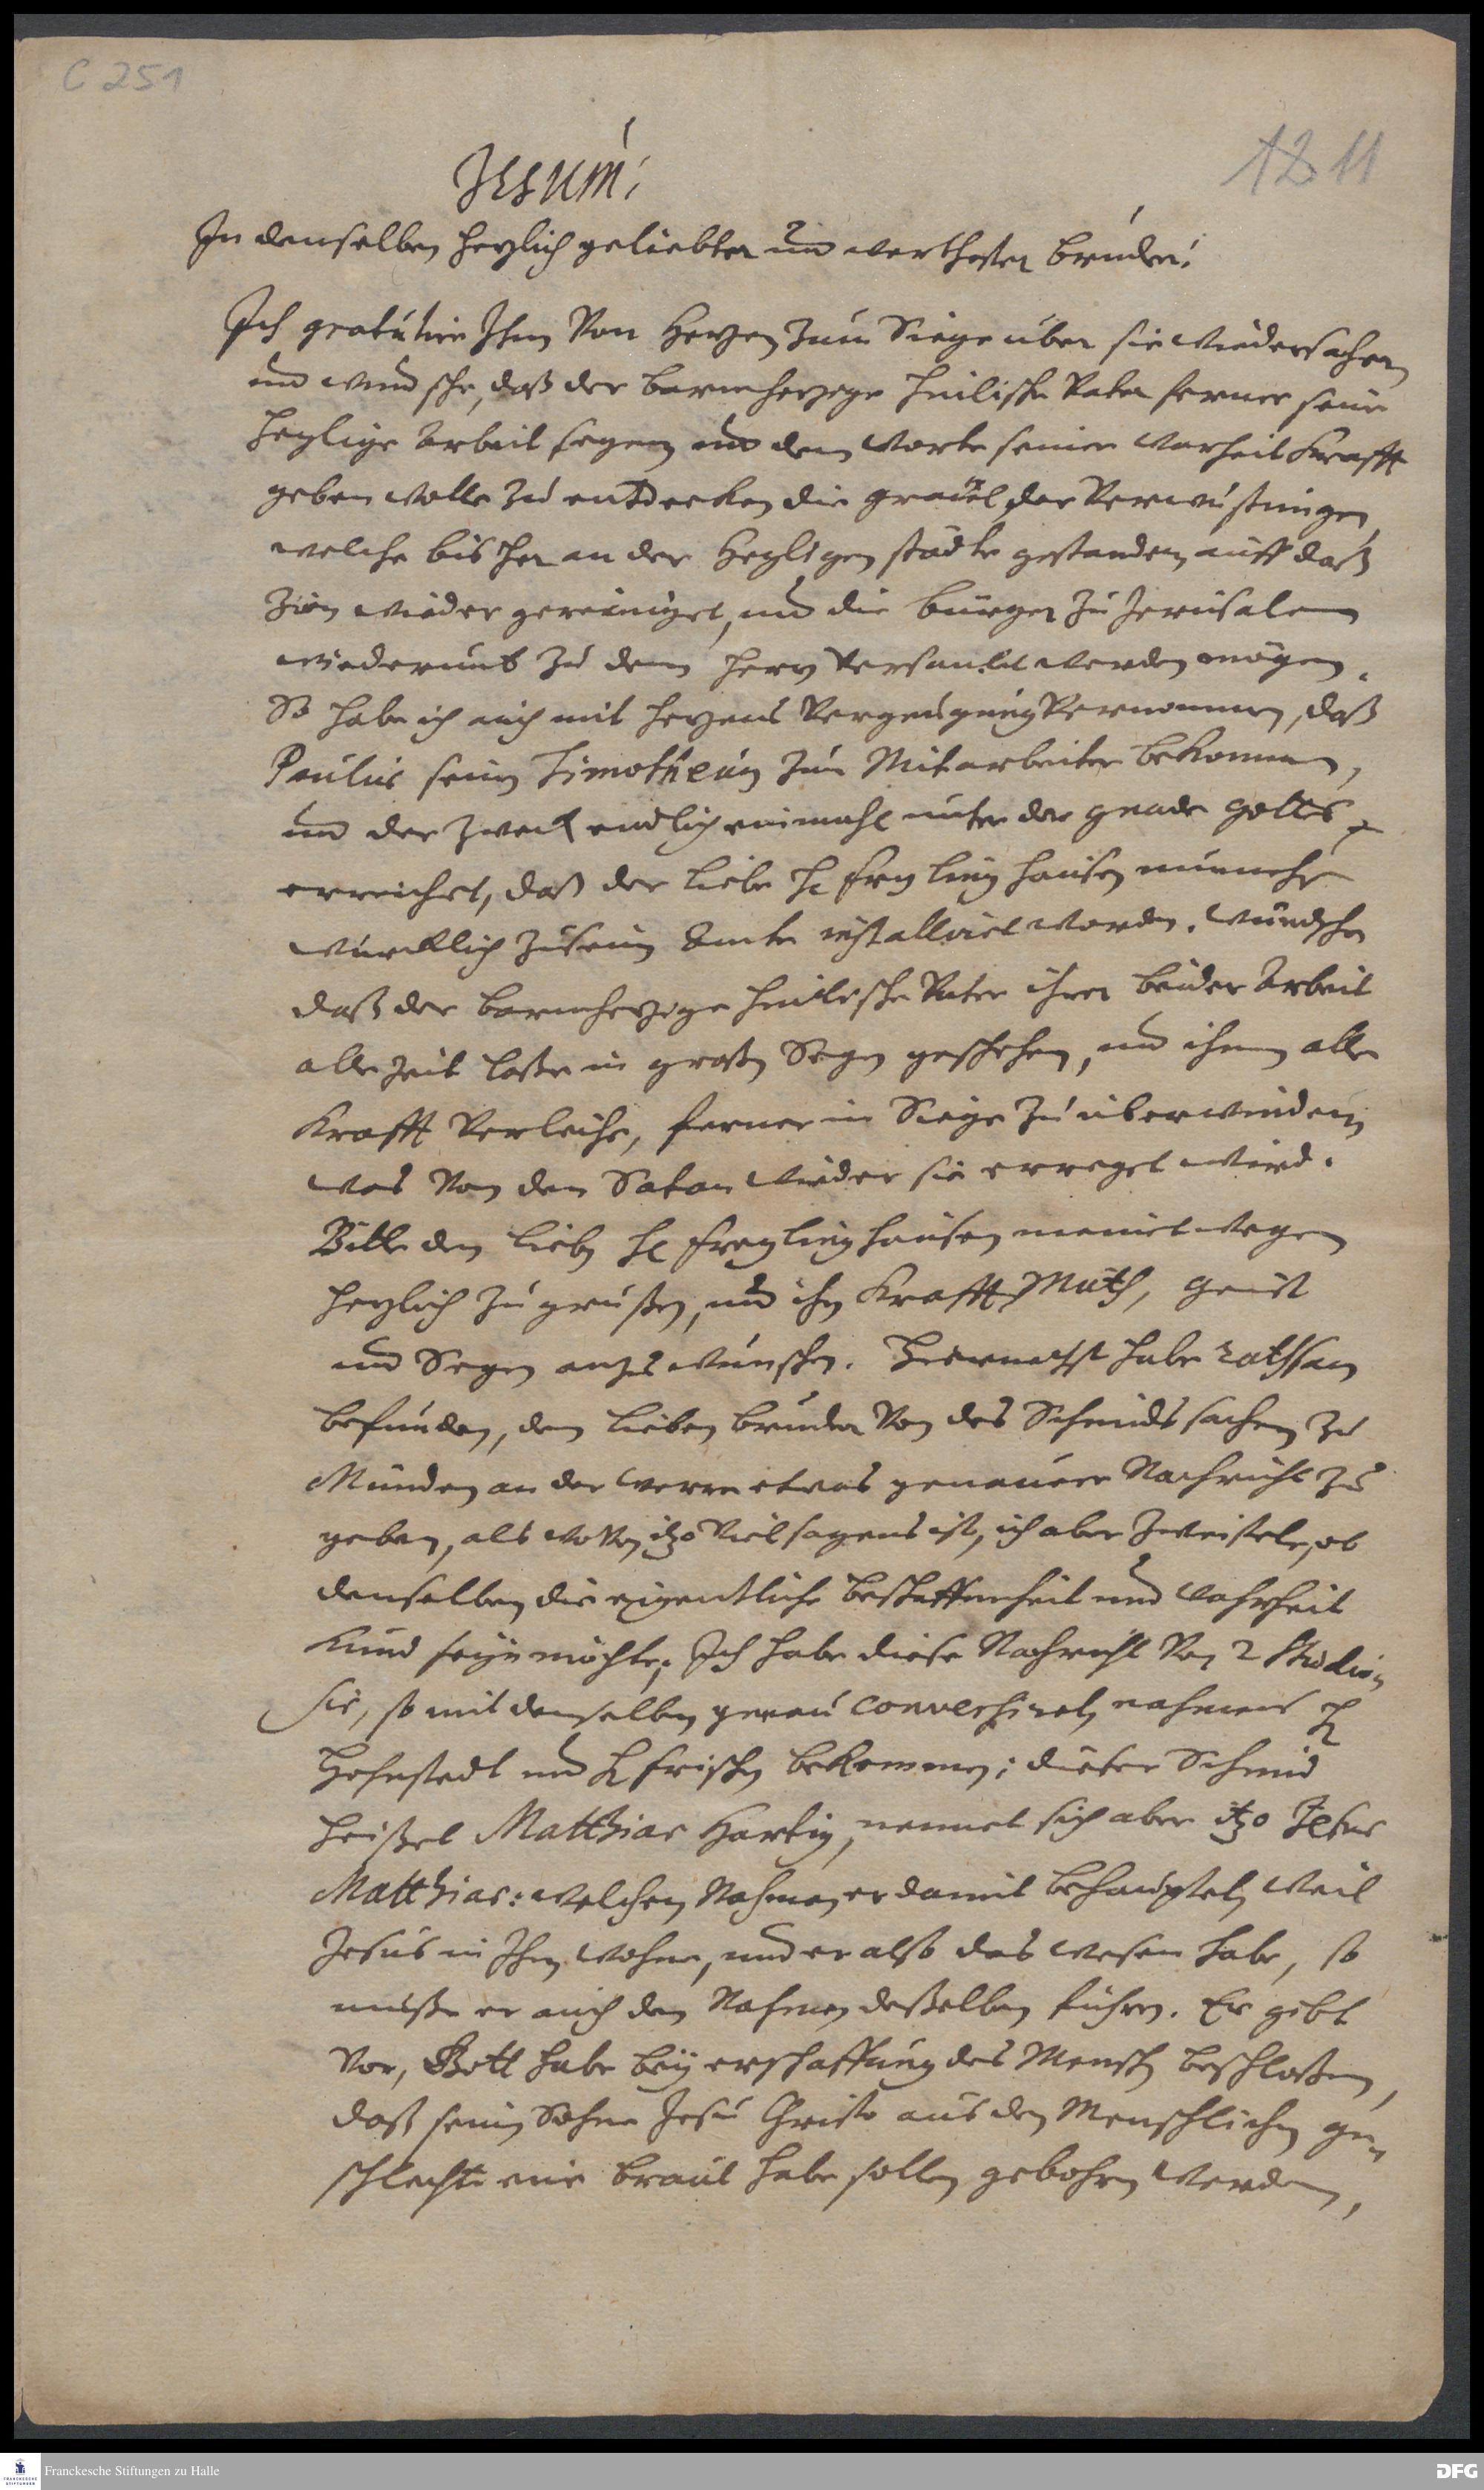 C 251
12 11
JEsum!
In demselben hertzlich geliebter und werthester bruder!
Ich gratulire Ihm von Hertzen zum Siege uber die wiedersacher,
und wundsche, daß der barmhertzige himlische Vater ferner seine
heylige Arbeit segnen und dem Worte seiner Warheit Krafft
geben wolle zu entdecken die greuel der Verwustungen,
welche bis her an der Heyligen städte gestanden, auff daß
Zion wieder gereiniget, und die burger zu Jerusalem
wiederumb zu dem Herrn versamlet werden mögen.
So habe ich auch mit hertzens Vergnugung vernommen, daß
Paulus seinen Timotheum zum Mitarbeiter bekommen,
und der Zweck endlich einmahl unter der gnade gottes
erreichet, daß der liebe H. Freylinghausen nunmehr
wurcklich zu seinem Amte installiret worden. Wundsche
daß der barmhertzige himlische Vater ihrer beider Arbeit
alle Zeit laße in großem Segen geschehen, und ihnen alle
Krafft verleihe, ferner im Siege zu uberwinden,
was von dem Satan wieder sie erreget wird.
Bitte den lieben H. Freylinghausen meinetwegen
hertzlich zu grußen, und ihm Krafft, Muth, Geist
und Segen anzuwunschen. Hiernechst habe rathsam
befunden, dem lieben bruder von des Schmids sachen zu
Münden an der Werre etwas genauere Nachricht zu
geben, als wovon itzo viel sagens ist, ich aber Zweifele, ob
demselben die eigentliche beschaffenheit und Wahrheit
kund seyn möchte. Ich habe diese Nachricht von 2 Studio-
sis, so mit demselben genau conversiret, nahmens H.
Hohnstedt und H. Frischen bekommen; dieser Schmid
heißet Matthias Hartig, nennet sich aber itzo Jesus
Matthias: welchen Nahmen er damit behauptet, weil
Jesus in Ihm wohne, und er also das wesen habe, so
muße er auch den Nahmen deßelben führen. Er gibt
vor, Gott habe bey erschaffung des Menschen beschloßen,
daß seinem Sohne Jesu Christo aus dem Menschlichen ge-
schlechte eine braut habe sollen gebohren werden,
Franckesche Stiftungen zu Halle
DFG